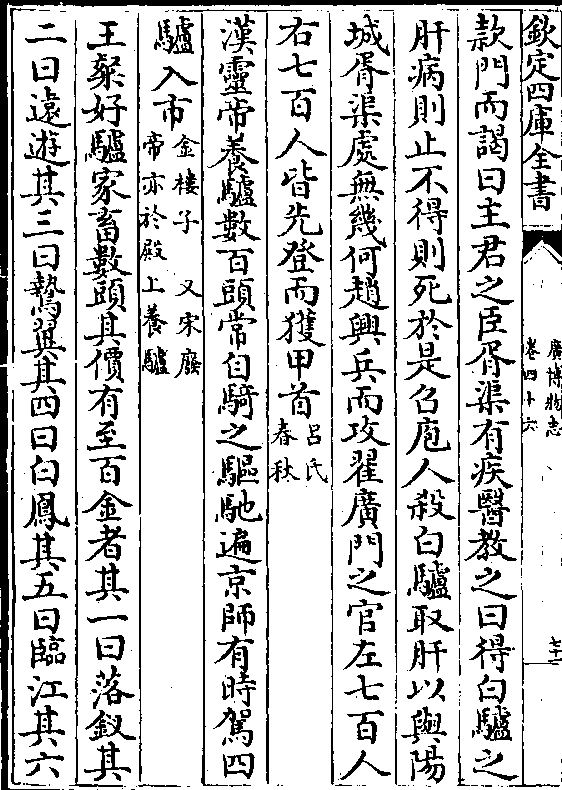 欽定四庫全書
廣博物志
卷四十六
七十二
款門而謁曰主君之臣胥渠有疾醫教之曰得白驢之
肝病則止不得則死於是召庖人殺白驢取肝以與陽
城胥渠處無幾何趙興兵而攻翟廣門之官左七百人
右七百人皆先登而獲甲首呂氏春秋
漢靈帝養驢數百頭常自騎之驅馳遍京師有時駕四
驢入市金樓子 又宋廢帝亦於殿上養驢
王粲好驢家畜數頭其價有至百金者其一曰落釵其
二曰遠遊其三曰鷔翼其四曰白鳳其五曰臨江其六